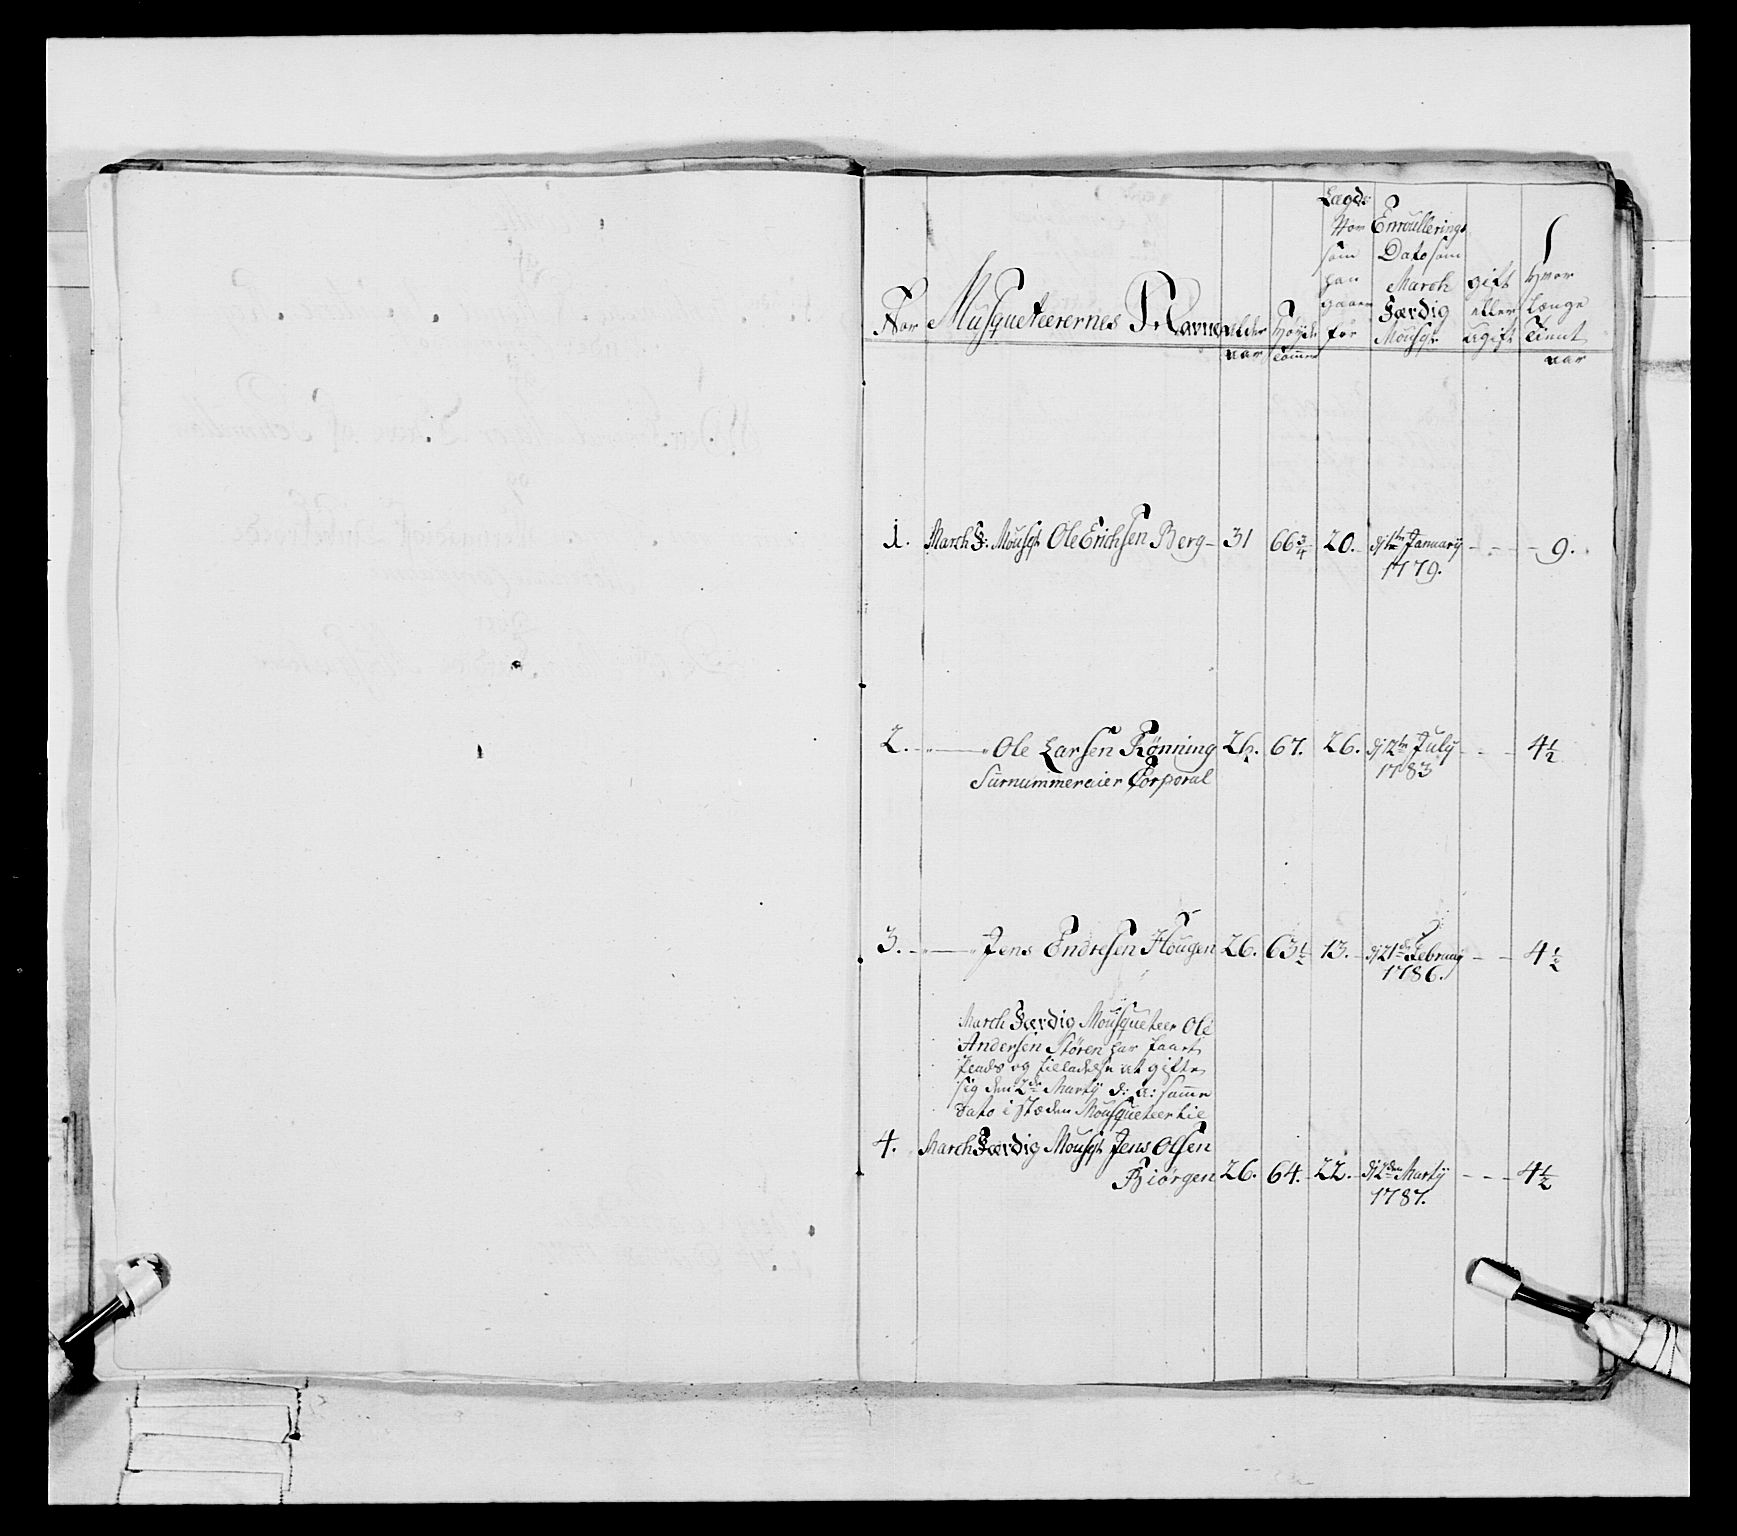 Nor Musqueteerernes Navne Alder Høyde Lægds Nor som han gaaer for Enroullerings Dato som March Færdig Mousqt gift eller ugift Hvor længe tient
aar Tommer aar
1. March F: Mousqt Ole Erichsen Berg 31 66 3/4 20. d 1te January 1779. 9.
2. Ole Larsen Rønning 26. 67. 26. d 12te July 1783 4 1/2
Surnummeraier Corporal
3. Jens Endresen Hougen 26. 63 1/2 13. d 21de February 1786. 4 1/2
March Færdig Mousqueteer Ole
Andersen Støren har faaet
Pends og tilladelse at gifte
sig den 2de Martij d: a: samme
Dato i stæden Mousqueteer til
4. March Færdig Mousqt Jens Olsen
Biørgen 26. 64. 22. d 2den Martij 1787. 4 1/2